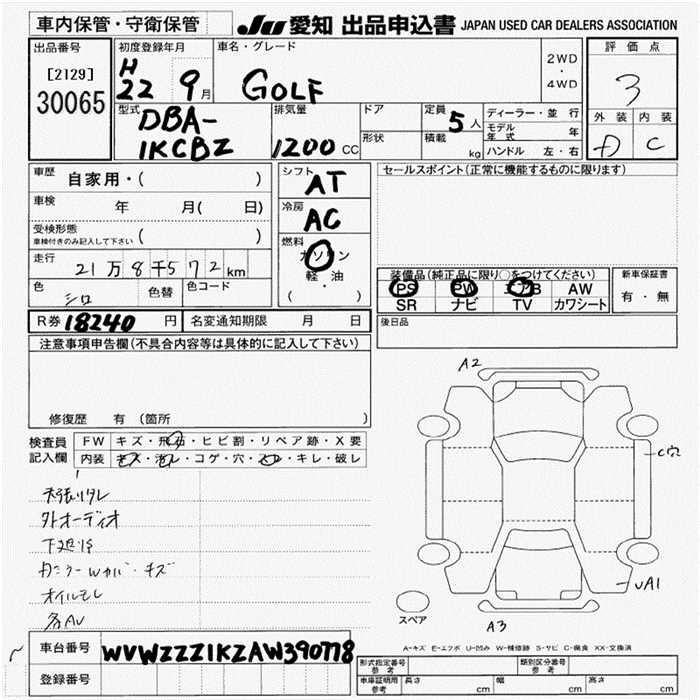 車内保管・守衛保管
JU 愛知 出品申込書 JAPAN USED CAR DEALERS ASSOCIATION
出品番号
[2129]
30065
初度登録年月
H22 9月
車名・グレード
GOLF
2WD
・
4WD
評価点
3
外装 内装
D C
型式
DBA-
1KCBZ
排気量
1200 CC
ドア
形状
定員 5人
積載 kg
ディーラー・並行
モデル年式 年
ハンドル 左・右
車歴 自家用・( )
車検 年 月( 日)
受検形態
車検付きのみ記入して下さい ( )
走行 21万8千572km
色 シロ 色替 色コード
シフト AT
冷房 AC
燃料
ガソリン
軽油
( ・ )
セールスポイント(正常に機能するものに限ります)
装備品(純正品に限り○をつけてください)
PS PW エアB AW
SR ナビ TV カワシート
新車保証書
有・無
R券 18240円 名変通知期限 月 日
後日品
注意事項申告欄(不具合内容等は具体的に記入して下さい)
修復歴 有(箇所 )
検査員記入欄
FW キズ・飛石・ヒビ割・リペア跡・X要
内装 キズ・汚レ・コゲ・穴・スレ・キレ・破レ
天張リタレ
外オーディオ
下廻リS
カラーWカバ・キズ
オイルモレ
各AU
A2
C穴
UA1
A3
スペア
A-キズ E-エフポ U-凹み W-補修跡 S-サビ C-腐食 XX-交換済
車台番号 WVWZZZ1KZAW390778
登録番号
形式指定番号 参考
類別区分番号 参考
車庫証明用 参考 長さ cm 幅 cm 高さ cm